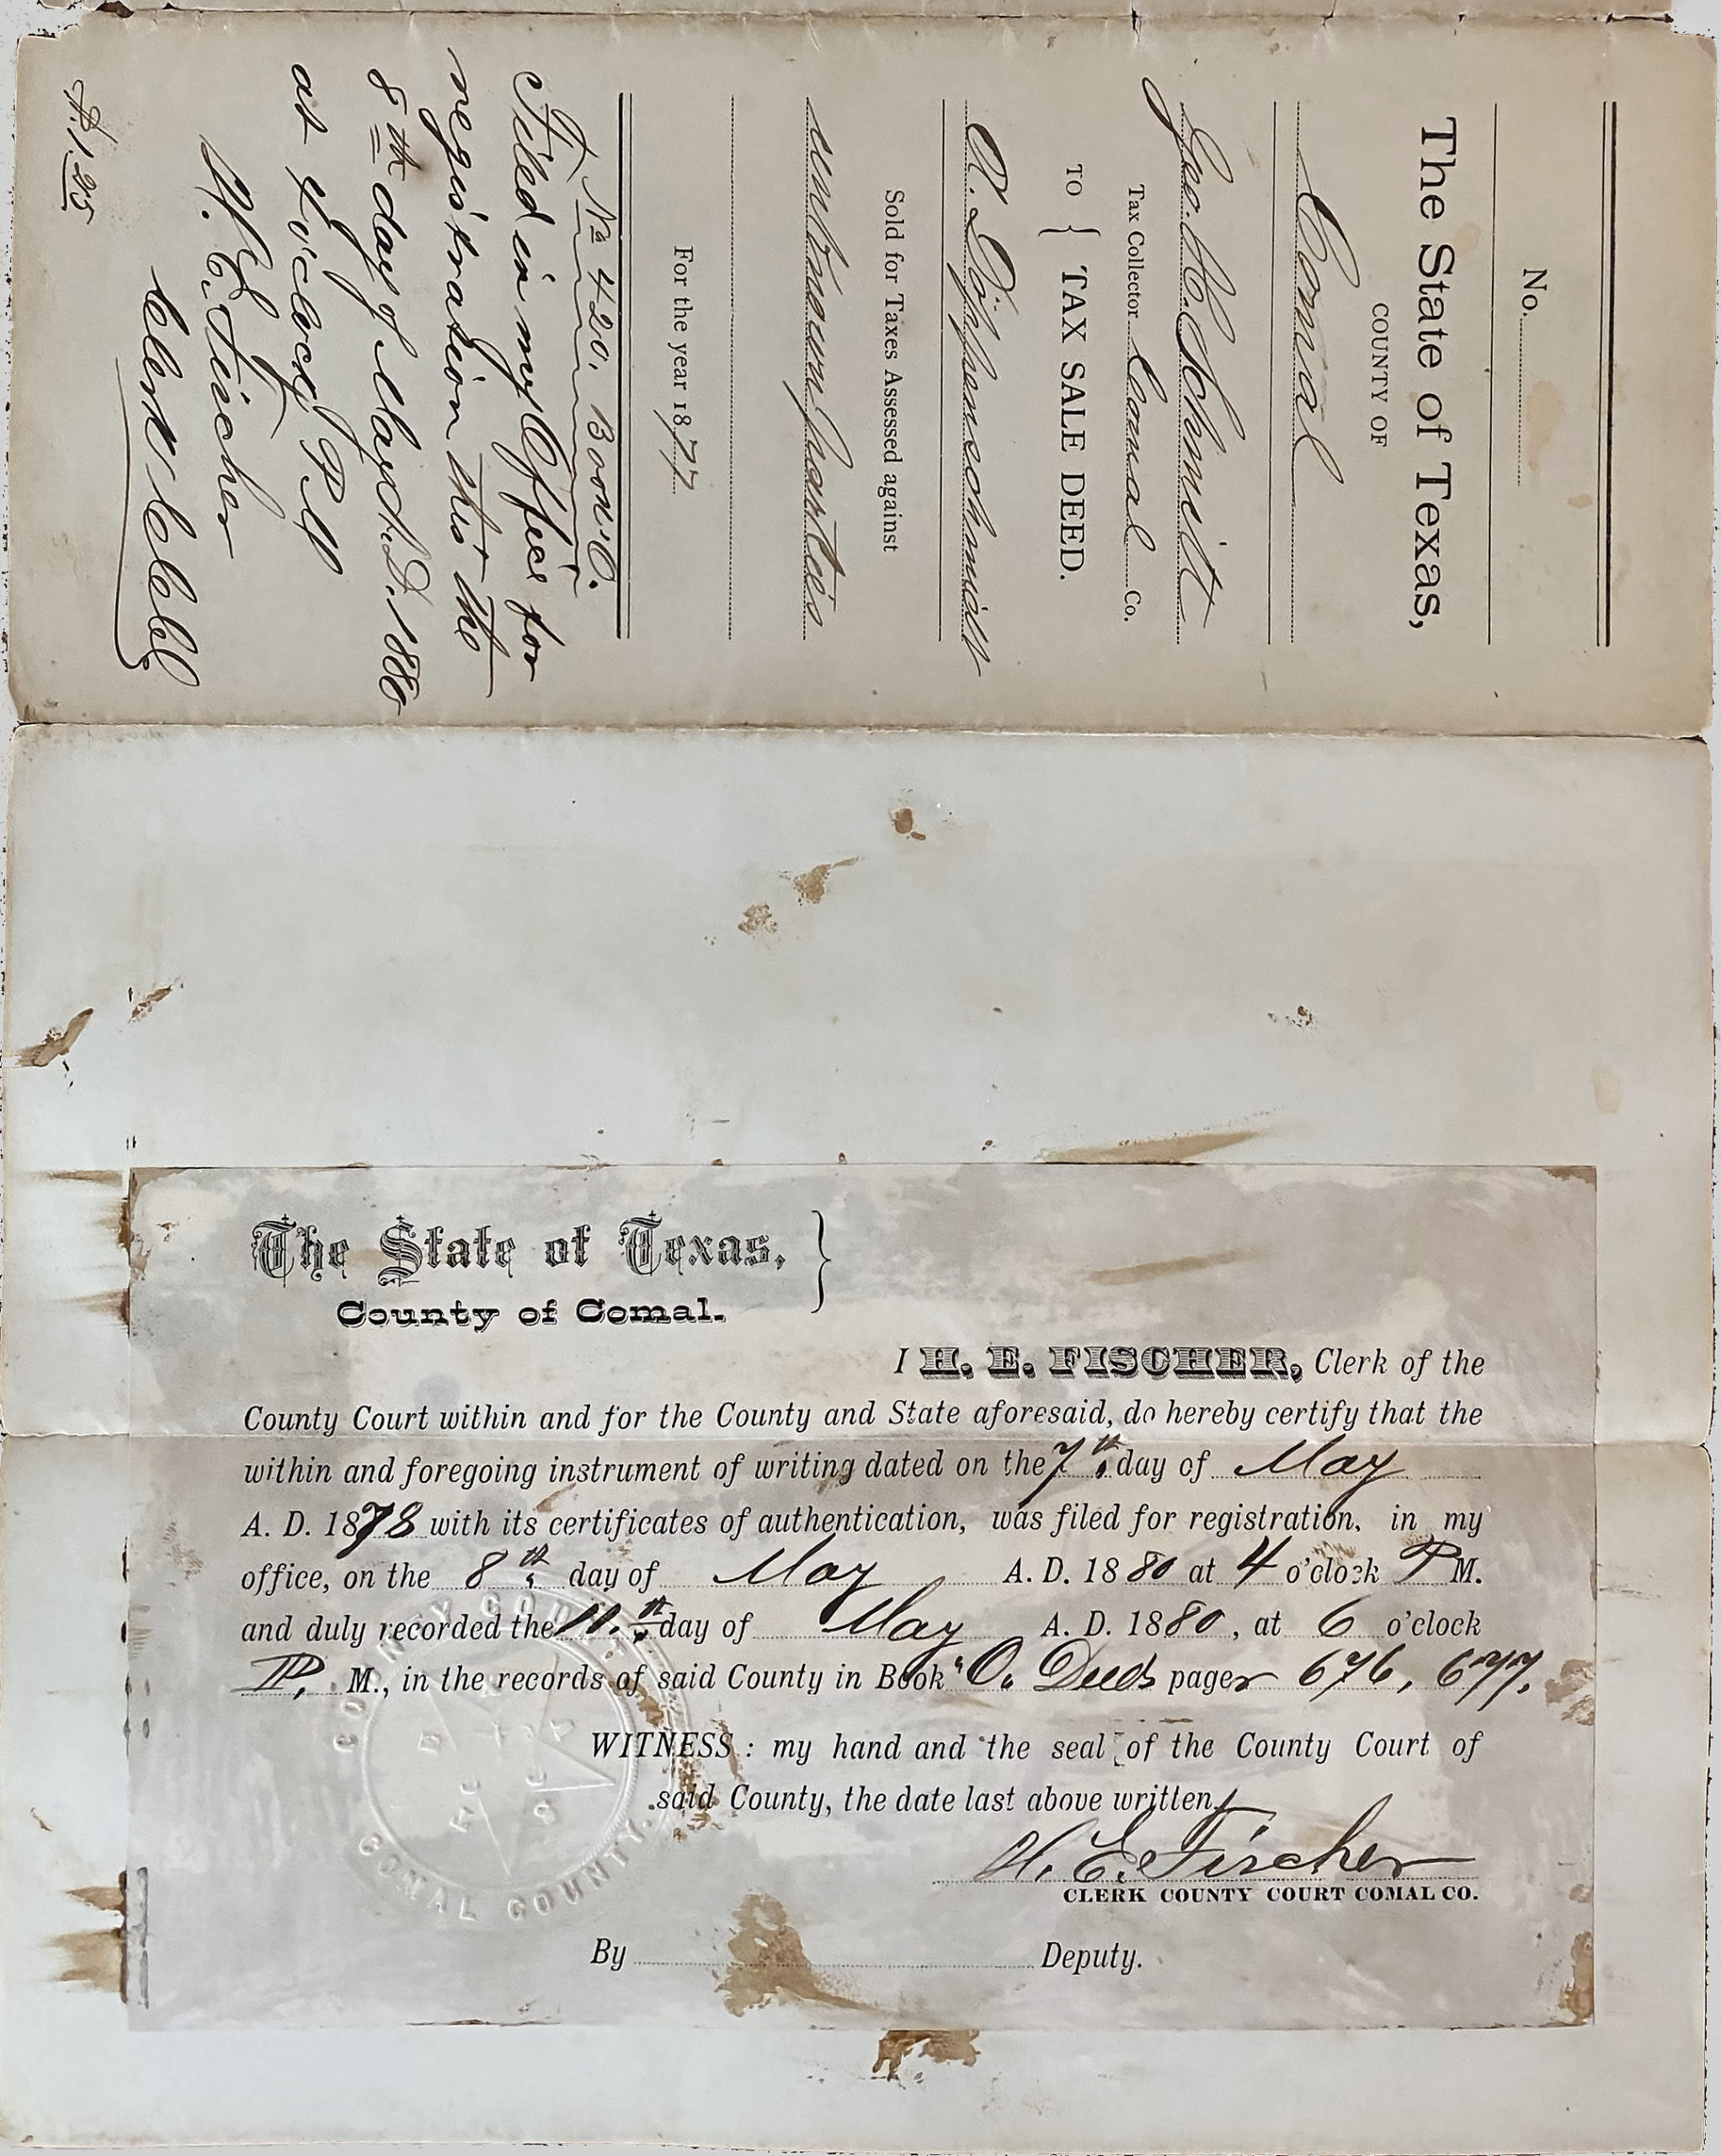 No.
The State of Texas,
COUNTY OF
Comal
Geo. H. Schmitt
Tax Collector Comal Co.
TO } TAX SALE DEED.
A. Dippenschmidt
Sold for Taxes Assessed against
unknown parties
For the year 1877
No 420. Book O.
Filed in my Office for
registration this the
8th day of May A.D. 1880
at 4 o'clock P M
H. E. Fischer
Clerk
$1.25
The State of Texas, }
County of Comal.
I H. E. FISCHER, Clerk of the
County Court within and for the County and State aforesaid, do hereby certify that the
within and foregoing instrument of writing dated on the 7th day of May
A. D. 1878 with its certificates of authentication, was filed for registration, in my
office, on the 8th day of May A. D. 1880 at 4 o'clock P M.
and duly recorded the 11th day of May A. D. 1880, at 6 o'clock
P. M., in the records of said County in Book "O. Deeds pages 676, 677.
WITNESS: my hand and the seal of the County Court of
said County, the date last above written.
H. E. Fischer
CLERK COUNTY COURT COMAL CO.
By Deputy.
COUNTY COURT
COMAL COUNTY.